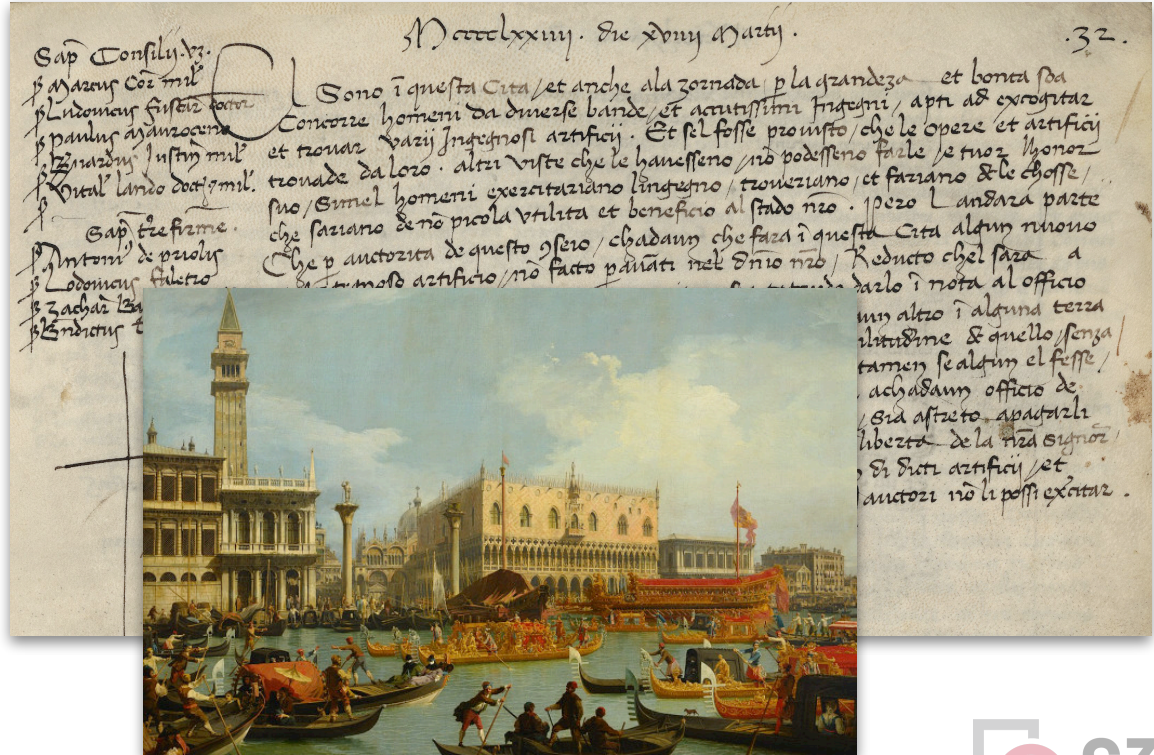 Mcccclxxiiii. die xviiii Martij.
.32.
Sap Consilij. vz.
p Marcus Cor mil
p Ludovicus fuscar doctor
p paulus Mauroceno
p Bnardus Justin mil
p Vital lando doct z mil.
Sap tre firme.
p Antoni de priolis
p Lodovicus faletro
p Zachar Ba
p Bndictus
El Sono i questa Cita / et anche ala zornada / p la grandeza et bonta soa
Concorre homeni da diverse bande / et acutissimi Ingegni / apti ad excogitar
et trovar varij Ingegnosi artificij. Et sel fosse provisto / che le opere et artificij
trovade da loro. altri viste che le havesseno / no podesseno farle / e tuor lhonor
suo / Simel homeni exercitariano lingegno / troveriano / et fariano de le chosse /
che sariano de no picola utilita et beneficio al stado nro. Pero Landara parte
Che p auctorita de questo 9seio / chadaun che fara i questa Cita algun nuovo
artificio / no facto p avati nel dnio nro / Reducto chel sara a
darlo i nota al officio
aun altro i alguna terra
ilitudine de quello / senza
tamen se algun el fesse /
achadaun officio de
/ Sia astreto apagarli
liberta de la nra Signor
di dicti artificij / et
auctori no li possi exercitar.
93